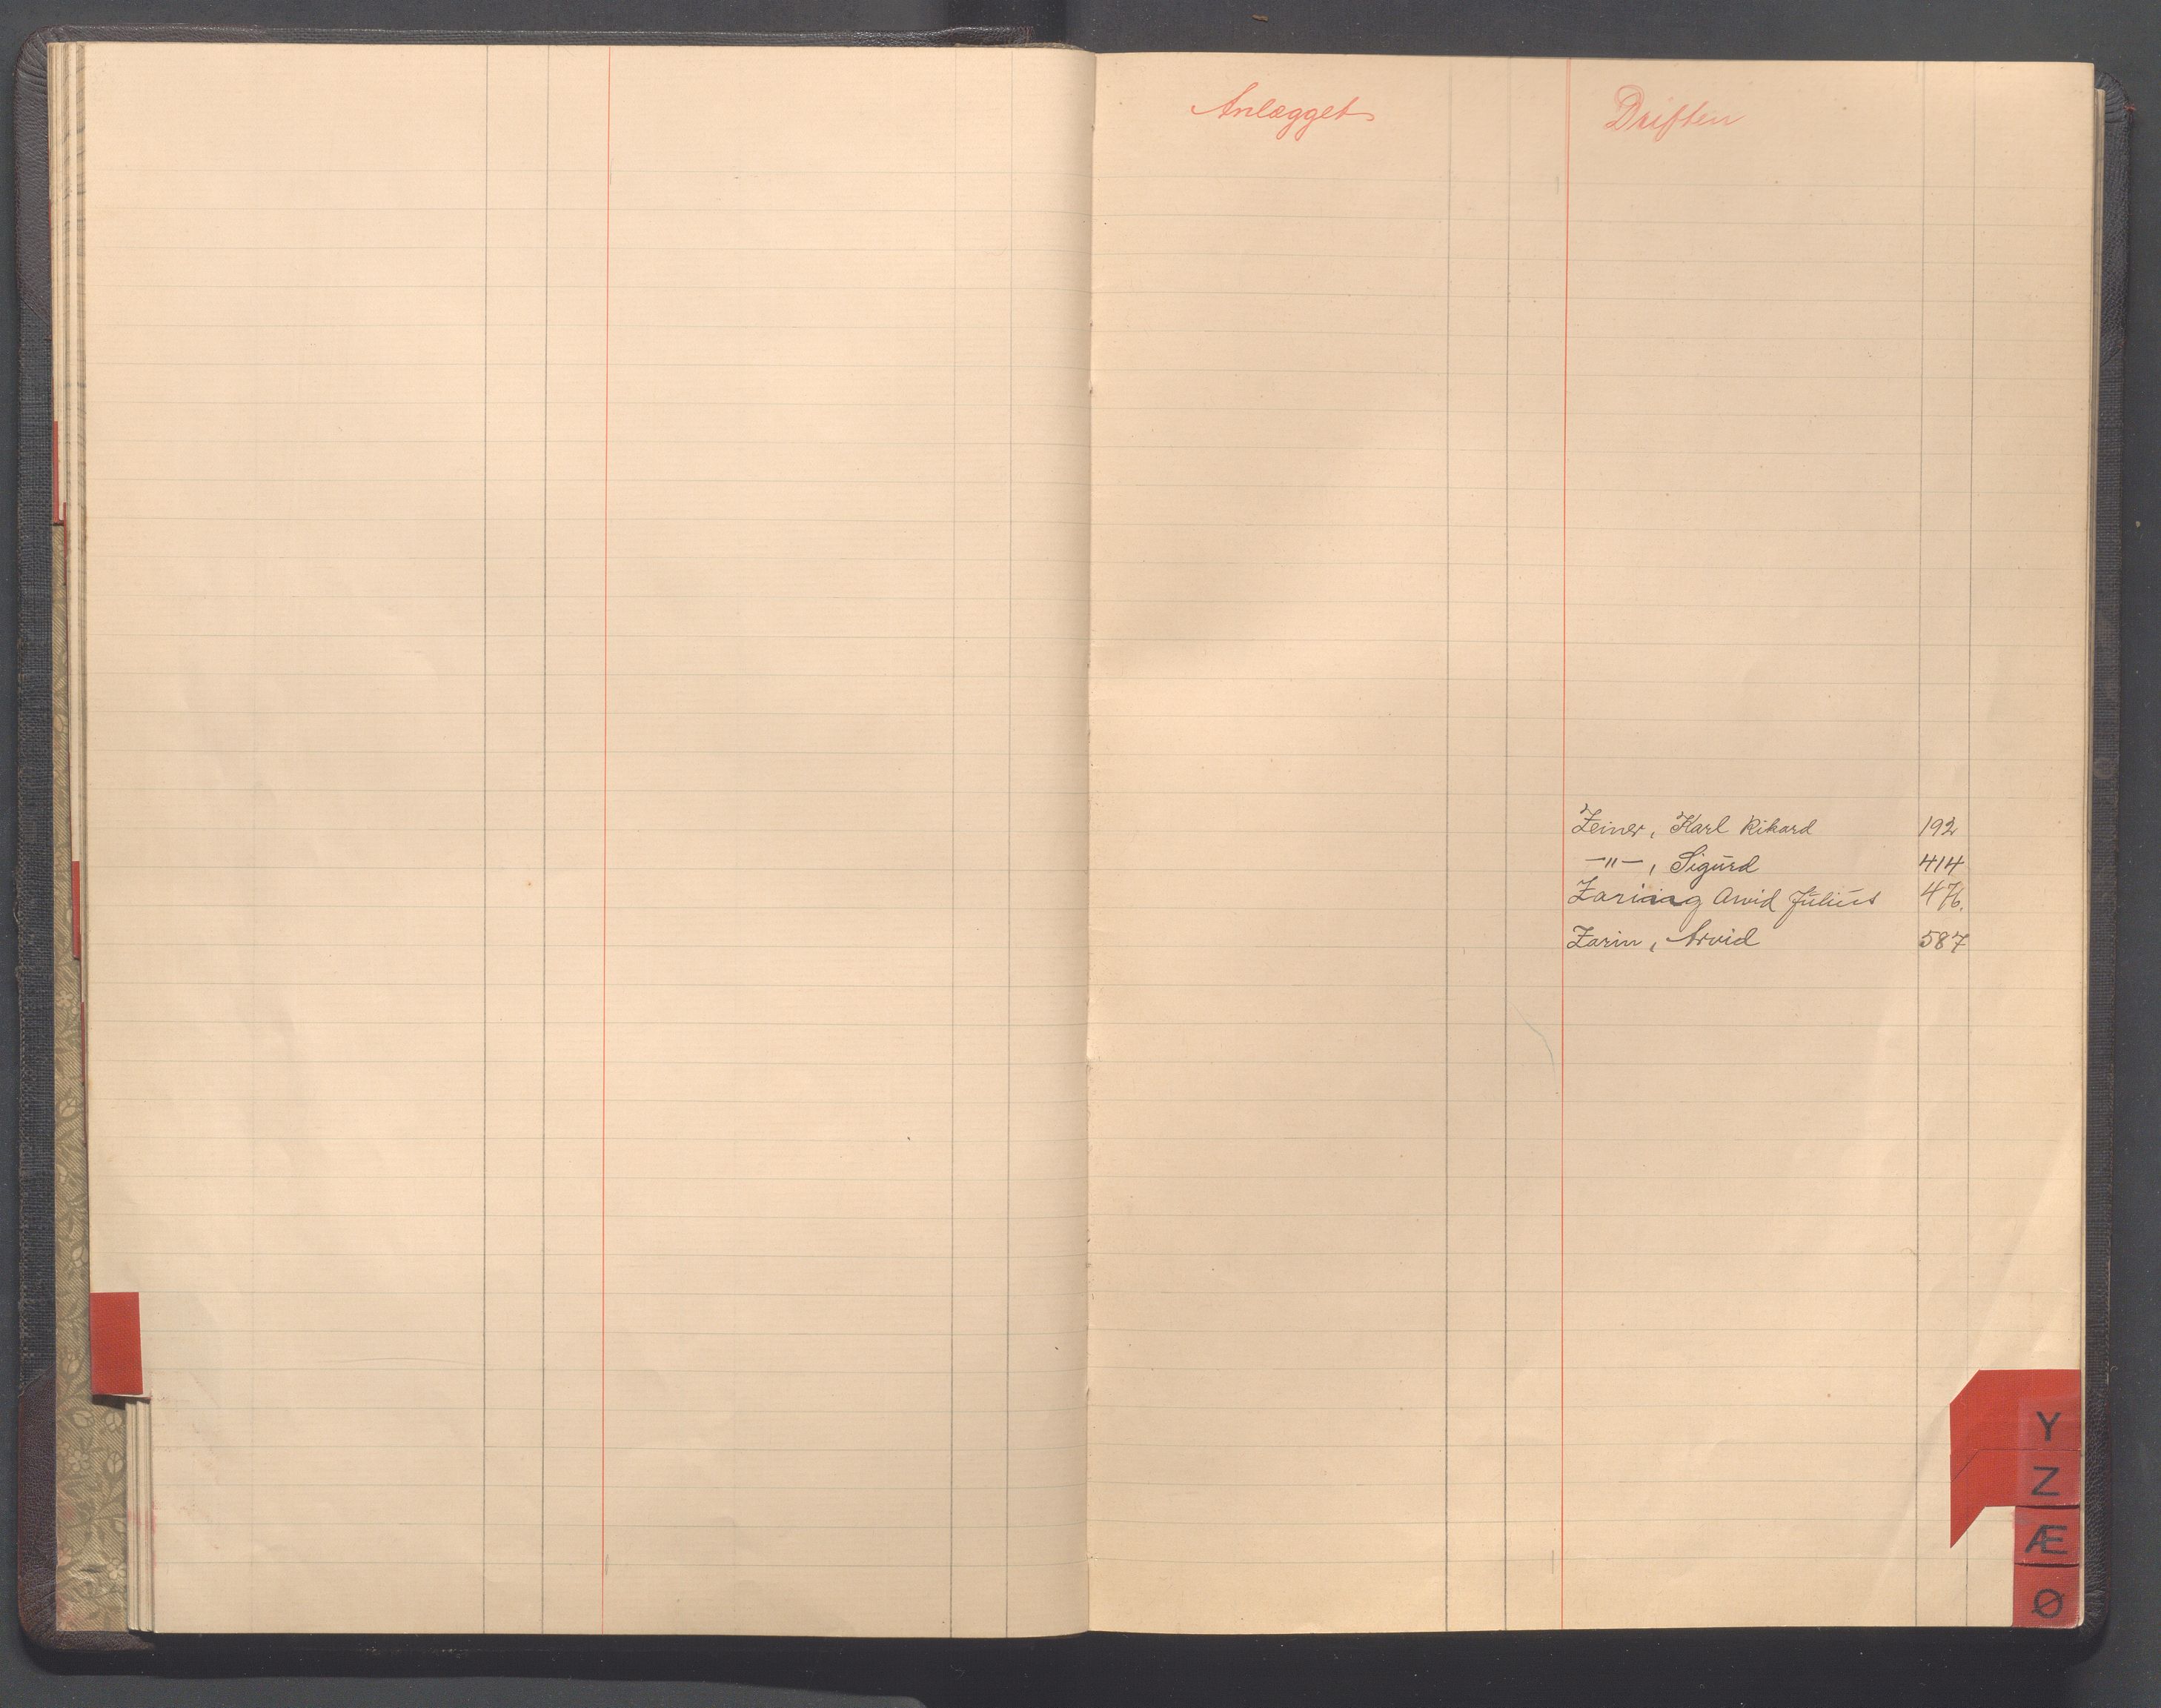 Anlægget
Driften
Zeiner, Karl Rikard 192
—"—, Sigurd 414
Arvid Julius 476.
Zarin, Arvid 587
Y
Z
Æ
Ø